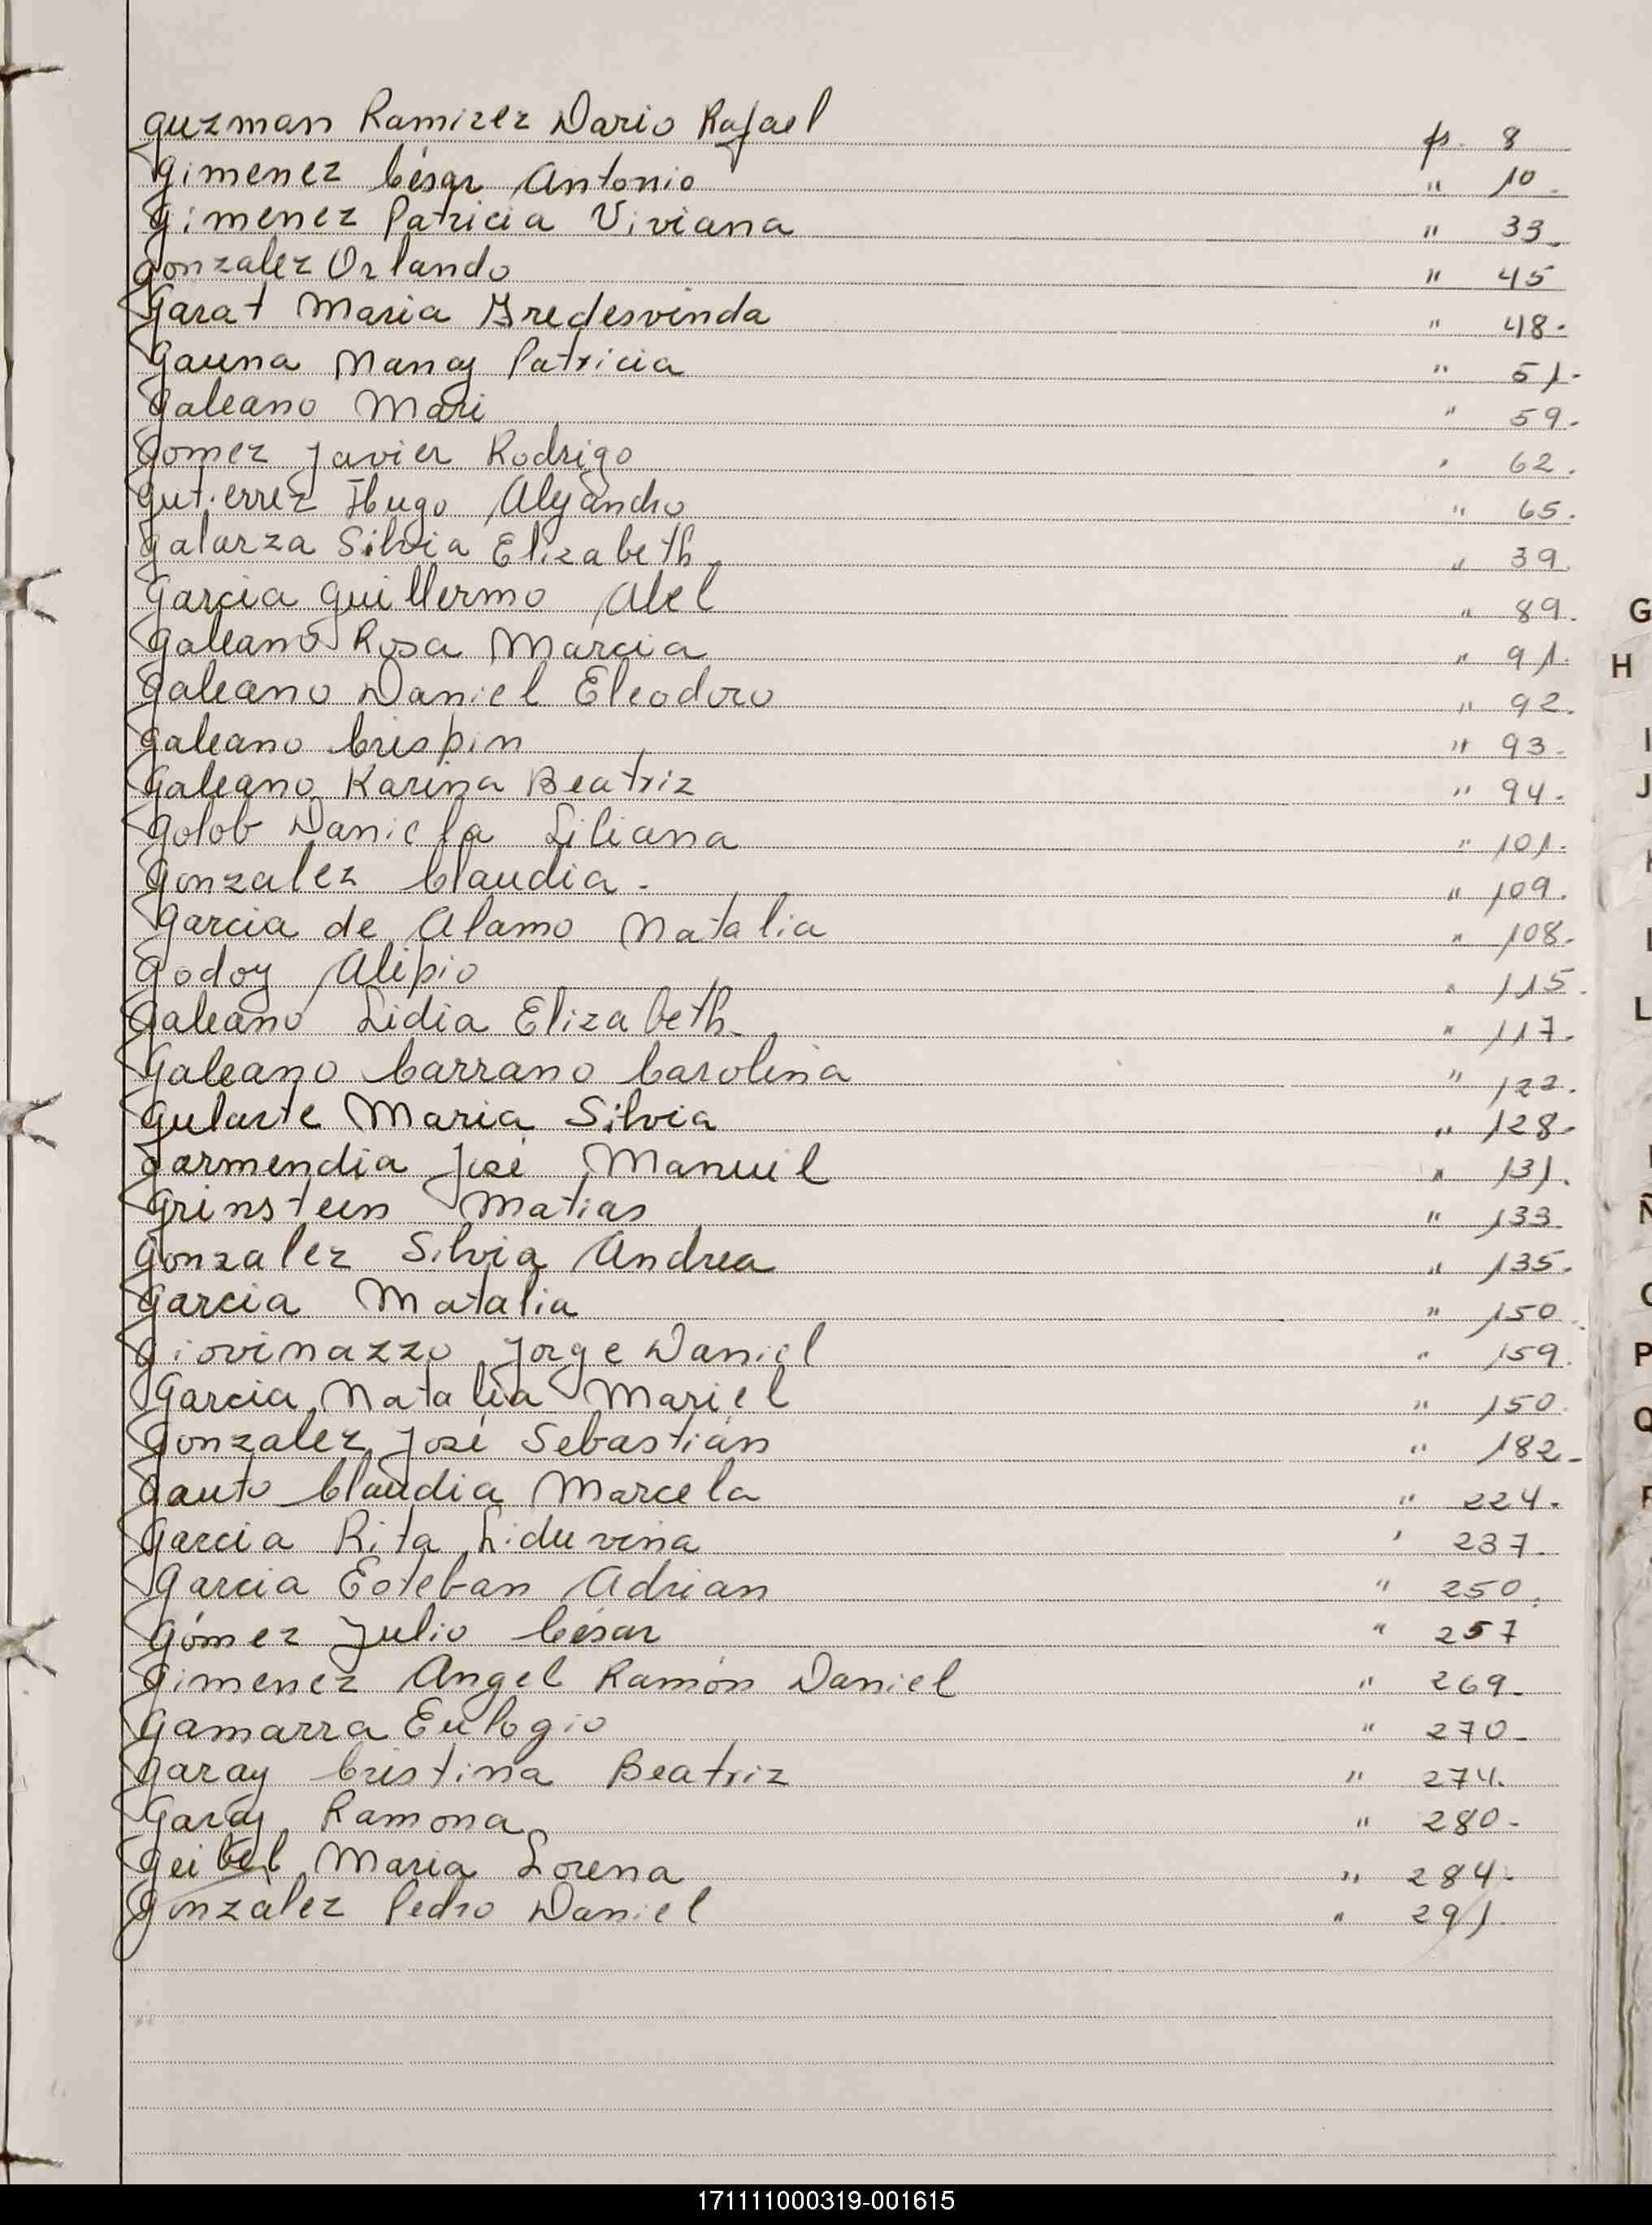 Guzman Ramirez Dario Rafael fs. 8
Gimenez César Antonio " 10.
Gimenez Patricia Viviana " 33.
Gonzalez Orlando " 45
Garat Maria Gredesvinda " 48.
Gauna Nancy Patricia " 51.
Galeano Mari " 59.
Gomez Javier Rodrigo " 62.
Gutierrez Hugo Alejandro " 65.
Galarza Silvia Elizabeth " 39.
Garcia Guillermo Abel " 89.
Galeano Rosa Marcia " 91.
Galeano Daniel Eleodoro " 92.
Galeano Crispin " 93.
Galeano Karina Beatriz " 94.
Golob Daniela Liliana " 101.
Gonzalez Claudia. " 109.
Garcia de Alamo Natalia " 108.
Godoy Alipio " 115.
Galeano Lidia Elizabeth " 117.
Galeano Carrano Carolina " 122.
Gularte Maria Silvia " 128.
Garmendia José Manuel " 131.
Grinstein Matias " 133.
Gonzalez Silvia Andrea " 135.
Garcia Natalia " 150.
Giovinazzo Jorge Daniel " 159.
Garcia Natalia Mariel " 150.
Gonzalez José Sebastián " 182.
Gauto Claudia Marcela " 224.
Garcia Rita Liduvina " 237.
Garcia Esteban Adrian " 250.
Gómez Julio César " 257
Gimenez Angel Ramón Daniel " 269.
Gamarra Eulogio " 270.
Garay Cristina Beatriz " 274.
Garay Ramona " 280.
Geibel Maria Lorena " 284.
Gonzalez Pedro Daniel " 291.
G
H
I
J
L
Ñ
P
Q
171111000319-001615